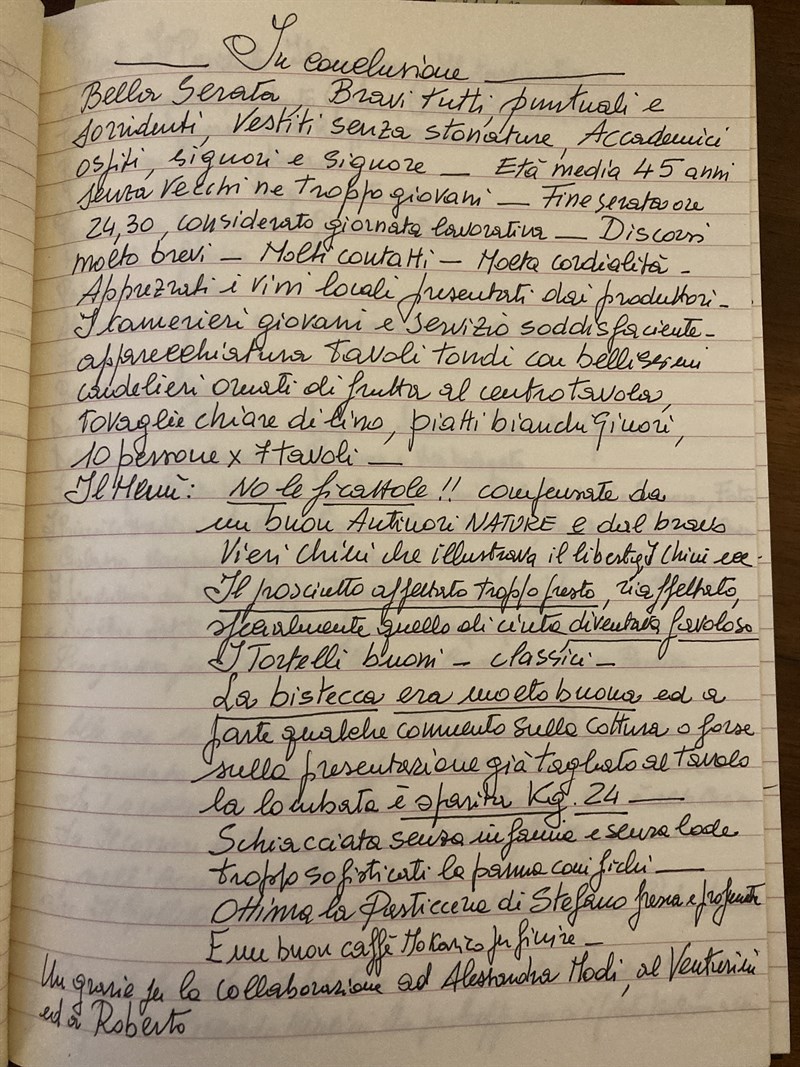 In conclusione
Bella Serata, Bravi tutti, puntuali e
sorridenti, Vestiti senza stonature, Accademici
ospiti, signori e signore — Età media 45 anni
senza Vecchi ne troppo giovani — Fine serata ore
24,30, considerato giornata lavorativa — Discorsi
molto brevi — Molti contatti — Molta cordialità —
Apprezzati i vini locali presentati dai produttori —
I camerieri giovani e servizio soddisfaciente —
apparecchiatura tavoli tondi con bellissimi
candelieri ornati di frutta al centro tavola,
tovaglie chiare di lino, piatti bianchi Ginori,
10 persone x 7 tavoli —
Il Menù: No le ficattole!! compensate da
un buon Antinori NATURE e dal bravo
Vieri Chini che illustrava il liberty I Chini ecc.
Il prosciutto affettato troppo presto, riaffettato,
specialmente quello di cinta diventava favoloso
I Tortelli buoni — classici —
La bistecca era molto buona ed a
parte qualche commento sulla cottura o forse
sulla presentazione già tagliato al tavolo
la lombata è sparita Kg. 24 —
Schiacciata senza infamia e senza lode
troppo sofisticati la panna con i fichi —
Ottima la Pasticceria di Stefano fresca e
E un buon caffè per finire —
Un grazie per la collaborazione ad Alessandra Modi, al Venturini
ed a Roberto